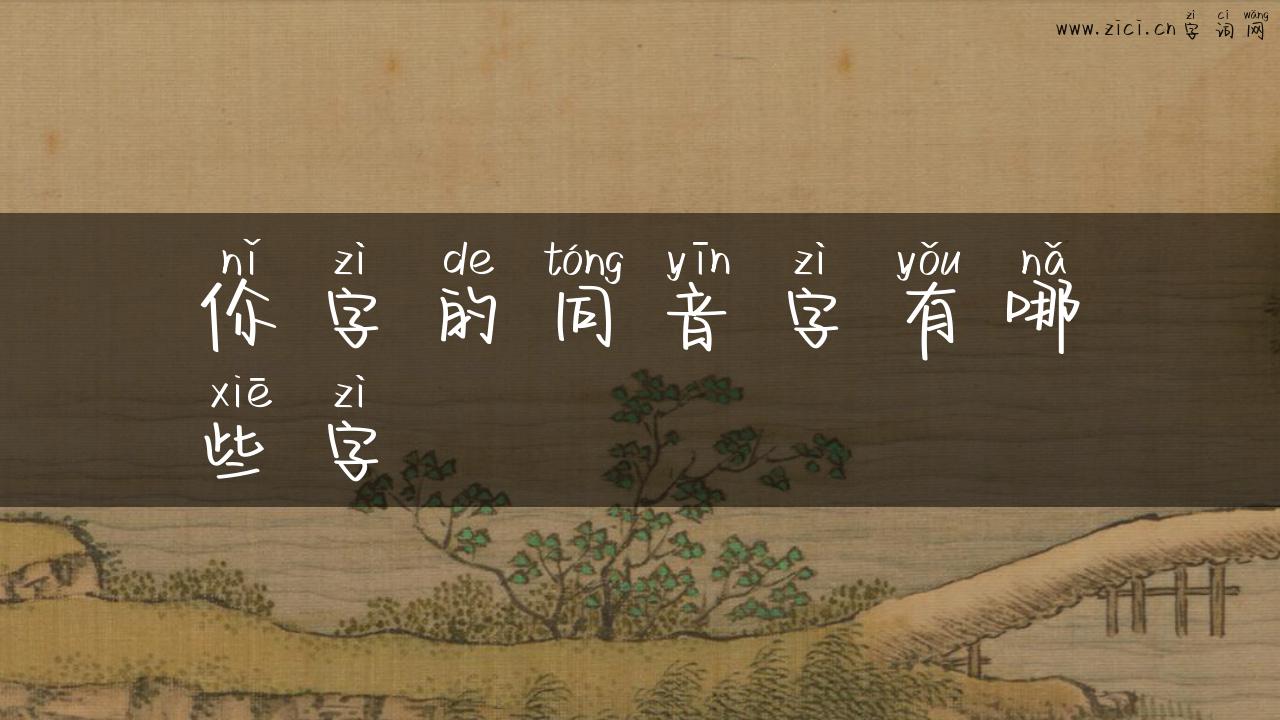 zì cí wǎng
www.zici.cn字词网
nǐ zì de tóng yīn zì yǒu nǎ
你字的同音字有哪
xiē zì
些字